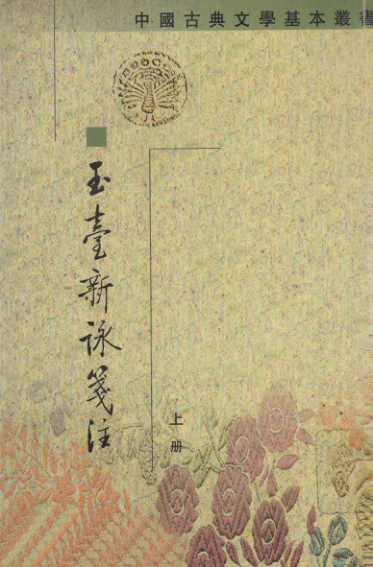 中國古典文學基本叢書
玉臺新詠箋注
上册